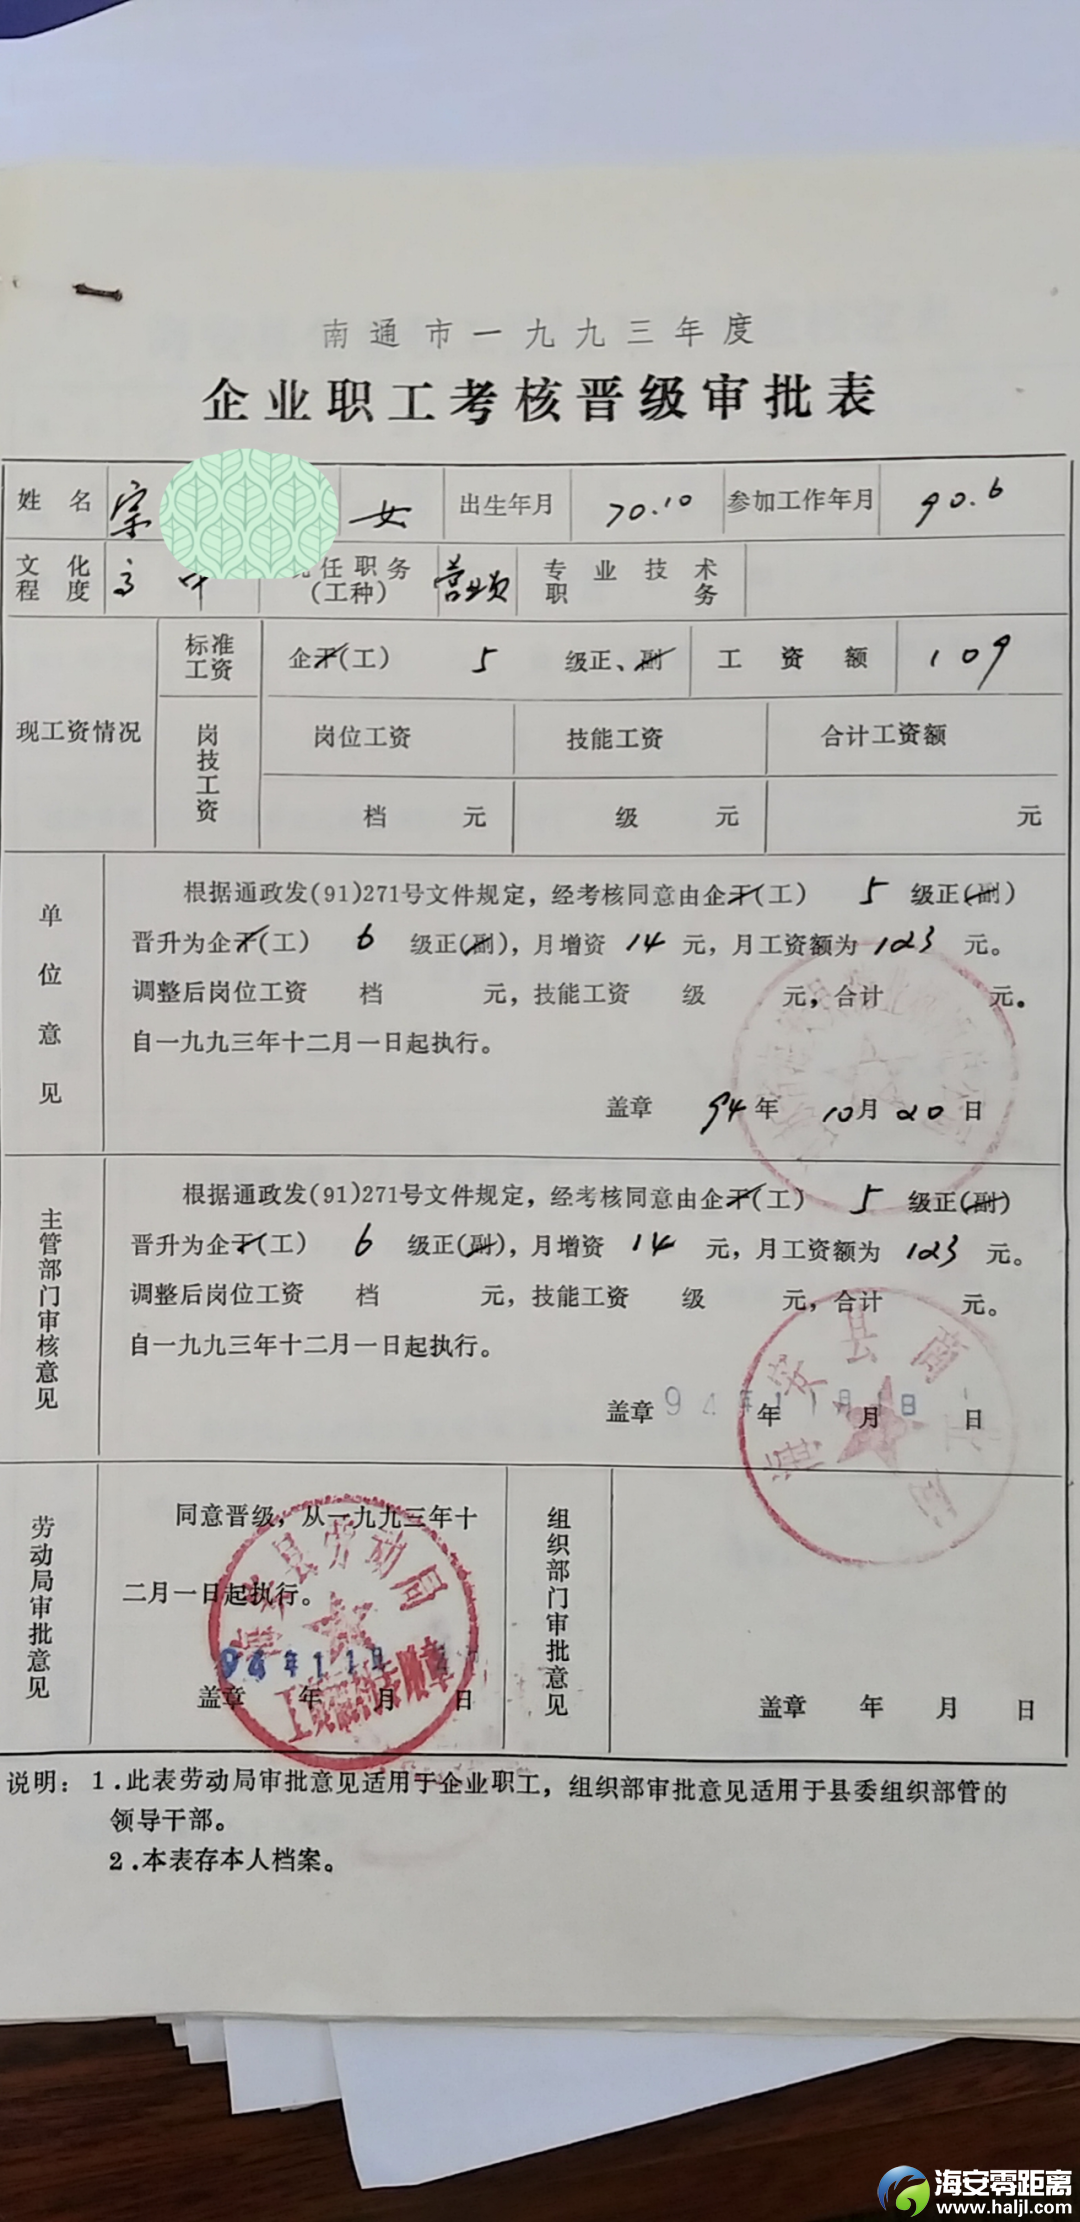 南通市一九九三年度
企业职工考核晋级审批表
姓名 宗 女 出生年月 70.10 参加工作年月 90.6
文化程度 高中 任职务(工种) 营业员 专业技术职务
现工资情况 标准工资 企干(工) 5 级正、副 工资额 109
岗技工资 岗位工资 技能工资 合计工资额
档 元 级 元 元
单位意见
根据通政发(91)271号文件规定，经考核同意由企干(工) 5 级正(副)
晋升为企干(工) 6 级正(副)，月增资 14 元，月工资额为 123 元。
调整后岗位工资 档 元，技能工资 级 元，合计 元。
自一九九三年十二月一日起执行。
盖章 94年 10月20日
主管部门审核意见
根据通政发(91)271号文件规定，经考核同意由企干(工) 5 级正(副)
晋升为企干(工) 6 级正(副)，月增资 14 元，月工资额为 123 元。
调整后岗位工资 档 元，技能工资 级 元，合计 元。
自一九九三年十二月一日起执行。
盖章 年 月 日
94年11月1日
海安县商业局
劳动局审批意见
同意晋级，从一九九三年十
二月一日起执行。
盖章 年 月 日
海安县劳动局
94年11月
组织部门审批意见
盖章 年 月 日
说明：1.此表劳动局审批意见适用于企业职工，组织部审批意见适用于县委组织部管的
领导干部。
2.本表存本人档案。
海安零距离
www.haljl.com